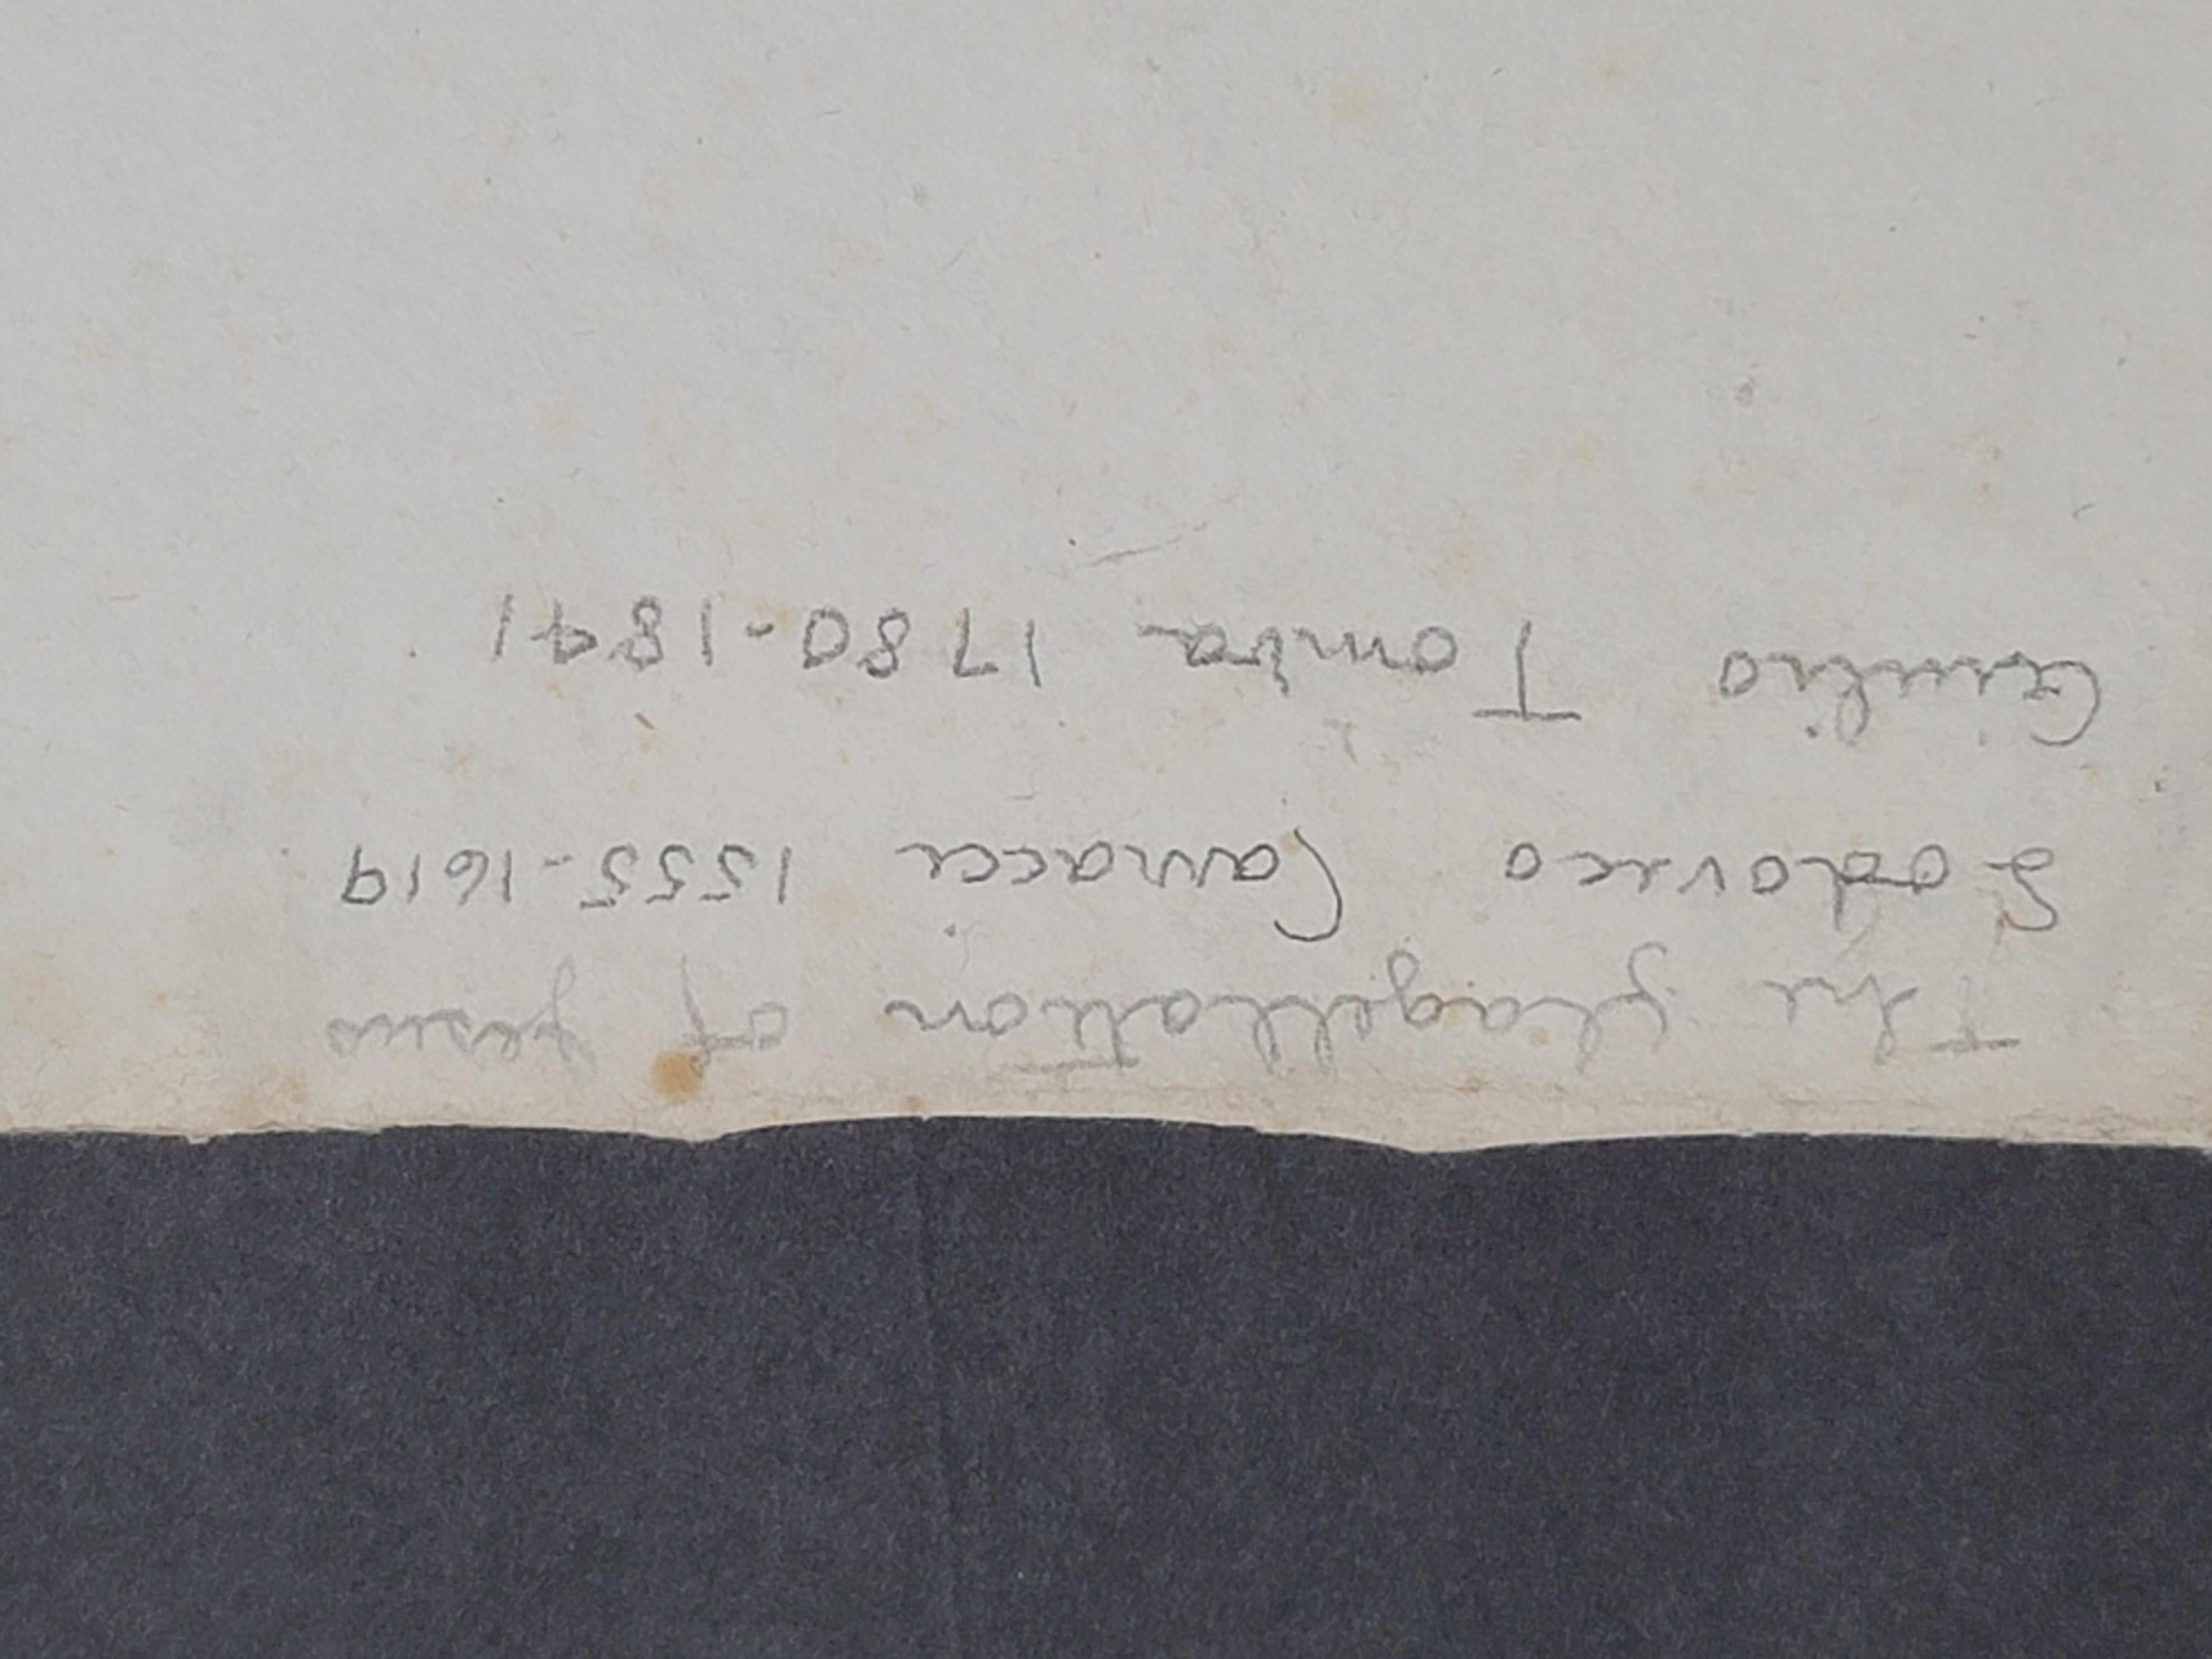 The flagellation of Jesus
Lodovico Carracci 1555-1619
Giulio Tomba 1780-1841